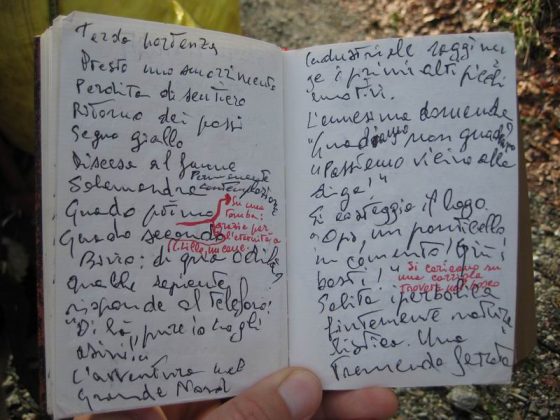 Tarda partenza
Presto uno smarrimento
Perdita di sentiero
Ritorno dei passi
Segno giallo
Discesa al fiume
Salamandra Permanente
contemplazione
Guado primo
Su una
tomba:
grazie per
l'eternità a
Guado secondo
Bivio: di qua o di là
qualche serpente
risponde al telefono!
Di là, pure io tra gli
asinini
L'avventura nel
Grande Nord
industriale raggiun
ge i primi alti picchi
emotivi.
L'ennesima domanda
"Guadiamo o non guadiamo?"
"Passiamo vicino alla
diga!"
Si costeggia il lago.
Ops, un ponticello
in cemento!
basti!
Si caricano su
una carriola
trovata nel bosco
Salita iperbolica
fintamente natura
listica. Una
tremenda